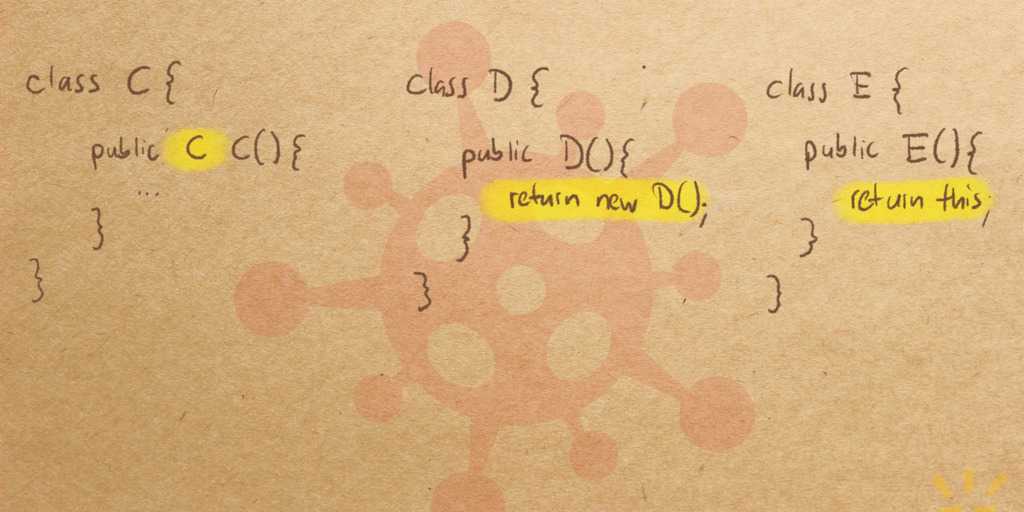 class C {
public C C(){
...
}
}
class D {
public D(){
return new D();
}
}
class E {
public E(){
return this;
}
}